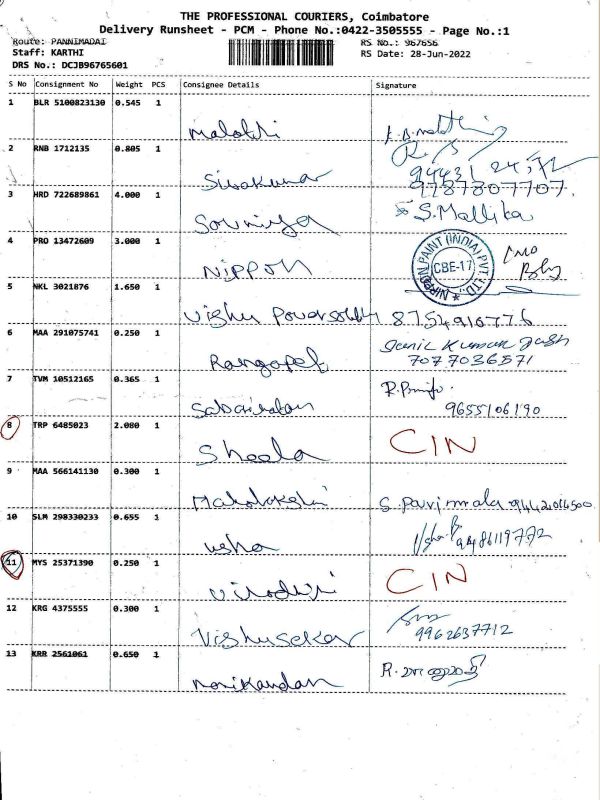 THE PROFESSIONAL COURIERS, Coimbatore
Delivery Runsheet - PCM - Phone No.:0422-3505555 - Page No.:1
Route: PANNIMADAI RS No.: 967656
Staff: KARTHI RS Date: 28-Jun-2022
DRS No.: DCJB96765601
S No Consignment No Weight PCS Consignee Details Signature
1 BLR 5100823130 0.545 1
Malathi
2 RNB 1712135 0.805 1
Sivakumar 94431 24,72
3 HRD 722689861 4.000 1 9787807707.
Soumiya S.Mallika
4 PRO 13472609 3.000 1
NIPPON NIPPON PAINT (INDIA) PVT. LTD., CBE-17
5 NKL 3021876 1.650 1
8754910776
6 MAA 291075741 0.250 1
7077036571
7 TVM 10512165 0.365 1
9655106190
8 TRP 6485023 2.080 1
Sheela CIN
9 MAA 566141130 0.300 1
S.Parimala
10 SLM 298330233 0.655 1
usha
11 MYS 25371390 0.250 1
CIN
12 KRG 4375555 0.300 1
Vishusekar 9962637712
13 KRR 2561061 0.650 1
Manikandan